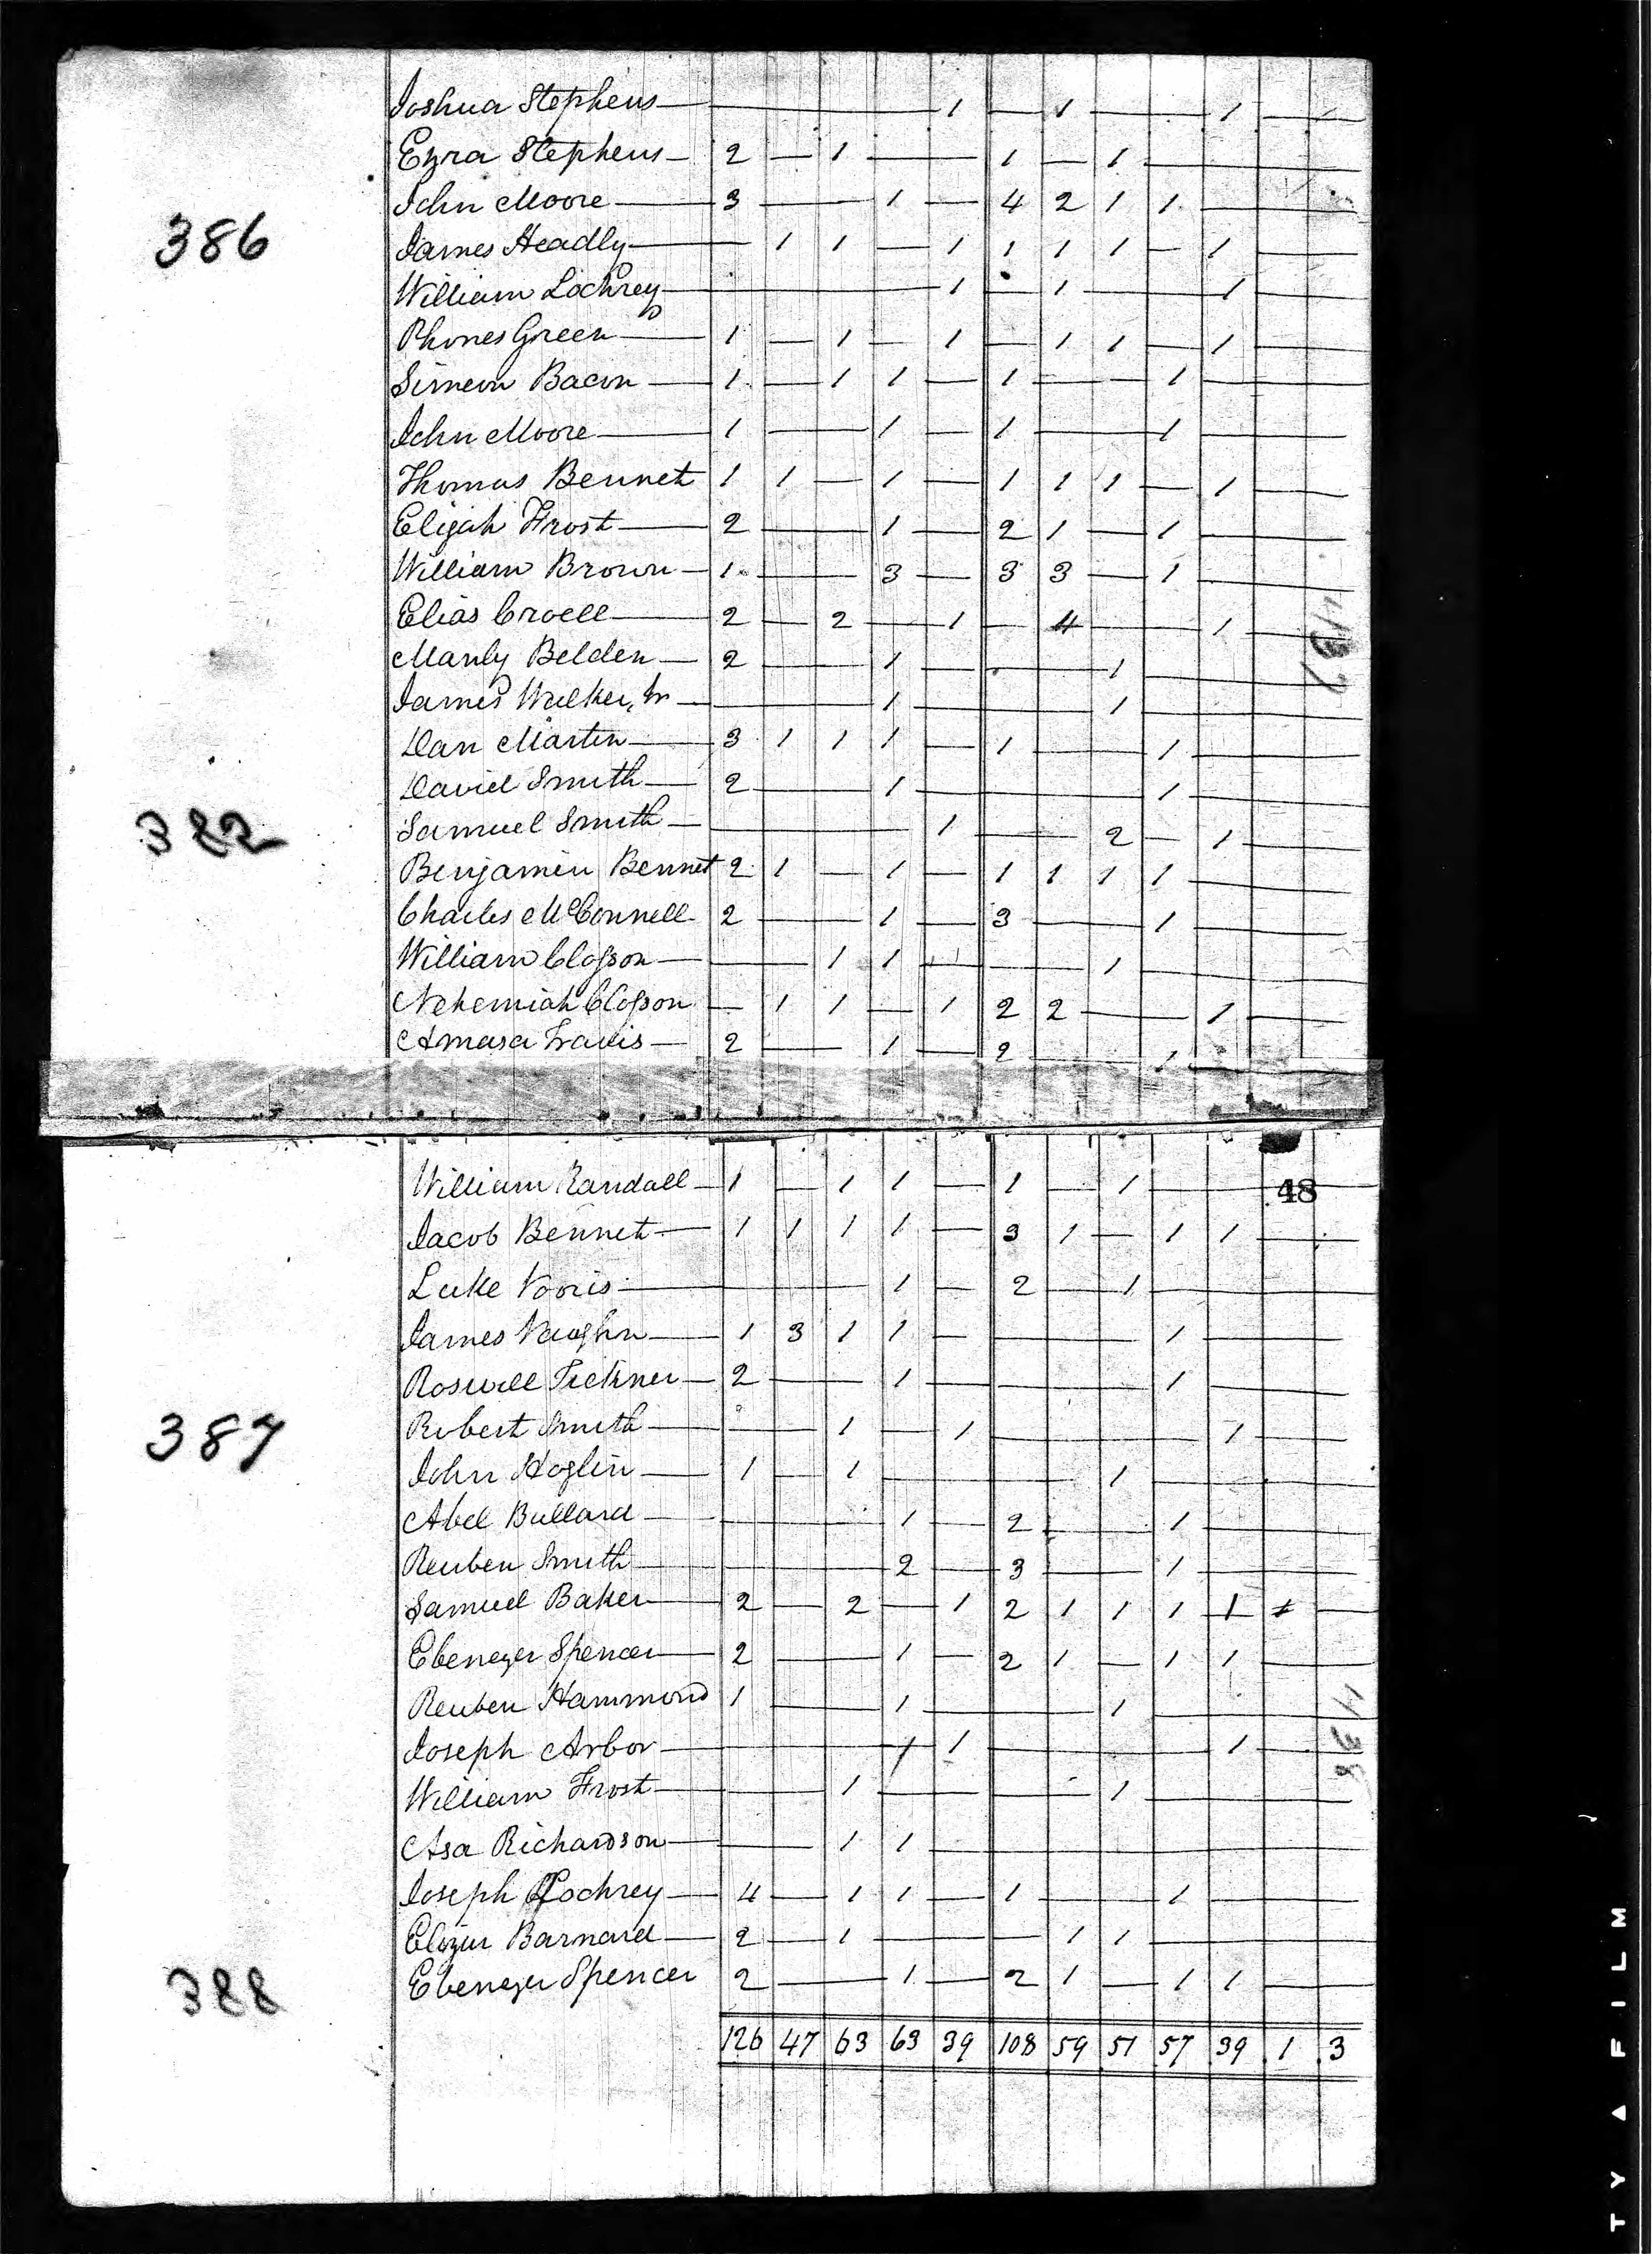 Joshua Stephens — — — — 1 — 1 — — 1 — —
Ezra Stephens — 2 — 1 — — 1 — 1 — — — —
386
John Moore — 3 — — 1 — 4 2 1 1 — — —
James Headly — — 1 1 — 1 1 1 1 — 1 — —
William Lochrey — — — — 1 — 1 — — 1 — —
Phones Green — 1 — 1 — 1 — 1 1 — 1 — —
Simeon Bacon — 1 — 1 1 — 1 — — 1 — — —
John Moore — 1 — — 1 — 1 — — 1 — — —
Thomas Bennet 1 1 — 1 — 1 1 1 — 1 — —
Elijah Frost — 2 — — 1 — 2 1 — 1 — — —
William Brown — 1 — — 3 — 3 3 — 1 — — —
Elias Croell — 2 — 2 — 1 — 4 — — 1 — —
Manly Belden — 2 — — 1 — — — 1 — — — —
James Walker, Jr — — — — 1 — — — 1 — — — —
Dan Martin — 3 1 1 1 — 1 — — 1 — — —
David Smith — 2 — — 1 — — — — 1 — — —
382
Samuel Smith — — — — — 1 — — 2 — 1 — —
Benjamin Bennet 2 1 — 1 — 1 1 1 1 — — —
Charles McConnell 2 — — 1 — 3 — — 1 — — —
William Closson — — — 1 1 — — — 1 — — — —
Nehemiah Closson — 1 1 — 1 2 2 — — 1 — —
Amasa Travis — 2 — — 1 — 2 — — 1 — — —
William Randall — 1 — 1 1 — 1 — 1 — — — —
48
Jacob Bennet — 1 1 1 1 — 3 1 — 1 1 — —
Luke Voris — — — — 1 — 2 — 1 — — — —
James Vaughn — 1 3 1 1 — — — — 1 — — —
Roswell Tickner — 2 — — 1 — — — — 1 — — —
387
Robert Smith — — — 1 — 1 — — — — 1 — —
John Hoglin — 1 — 1 — — — — 1 — — — —
Abel Bullard — — — — 1 — 2 — — 1 — — —
Reuben Smith — — — — 2 — 3 — — 1 — — —
Samuel Baker — 2 — 2 — 1 2 1 1 1 1 1 —
Ebenezer Spencer — 2 — — 1 — 2 1 — 1 1 — —
Reuben Hammond 1 — — 1 — — — 1 — — — —
Joseph Arbor — — — — 1 1 — — — — 1 — —
William Frost — — — 1 — — — — 1 — — — —
Asa Richardson — — — 1 1 — — — — — — — —
Joseph Lochrey — 4 — 1 1 — 1 — — 1 — — —
Elizur Barnard — 2 — 1 — — — 1 1 — — — —
388
Ebenezer Spencer 2 — — 1 — 2 1 — 1 1 — —
126 47 63 63 39 108 59 51 57 39 1 3
TY ▲ FILM